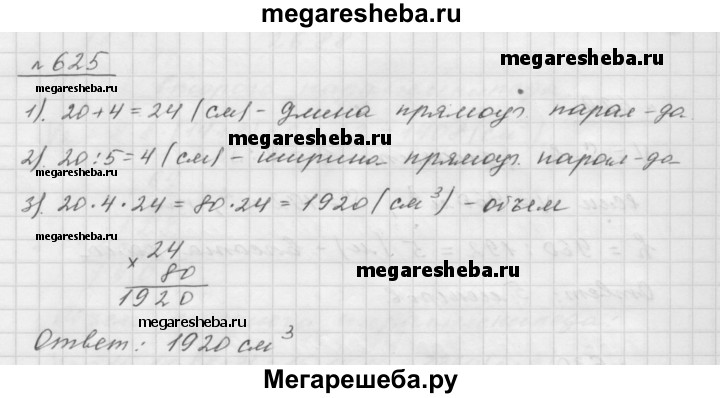 megaresheba.ru
№625
megaresheba.ru
megaresheba.ru
1). 20+4=24 (см) - длина прямоуг. парал-да.
megaresheba.ru
2). 20:5=4 (см) - ширина прямоуг. парал-да
megaresheba.ru
3). 20·4·24=80·24=1920 (см³) - объем
megaresheba.ru
24
× 80
megaresheba.ru
1920
megaresheba.ru
Ответ: 1920 см³
Мегарешеба.ру